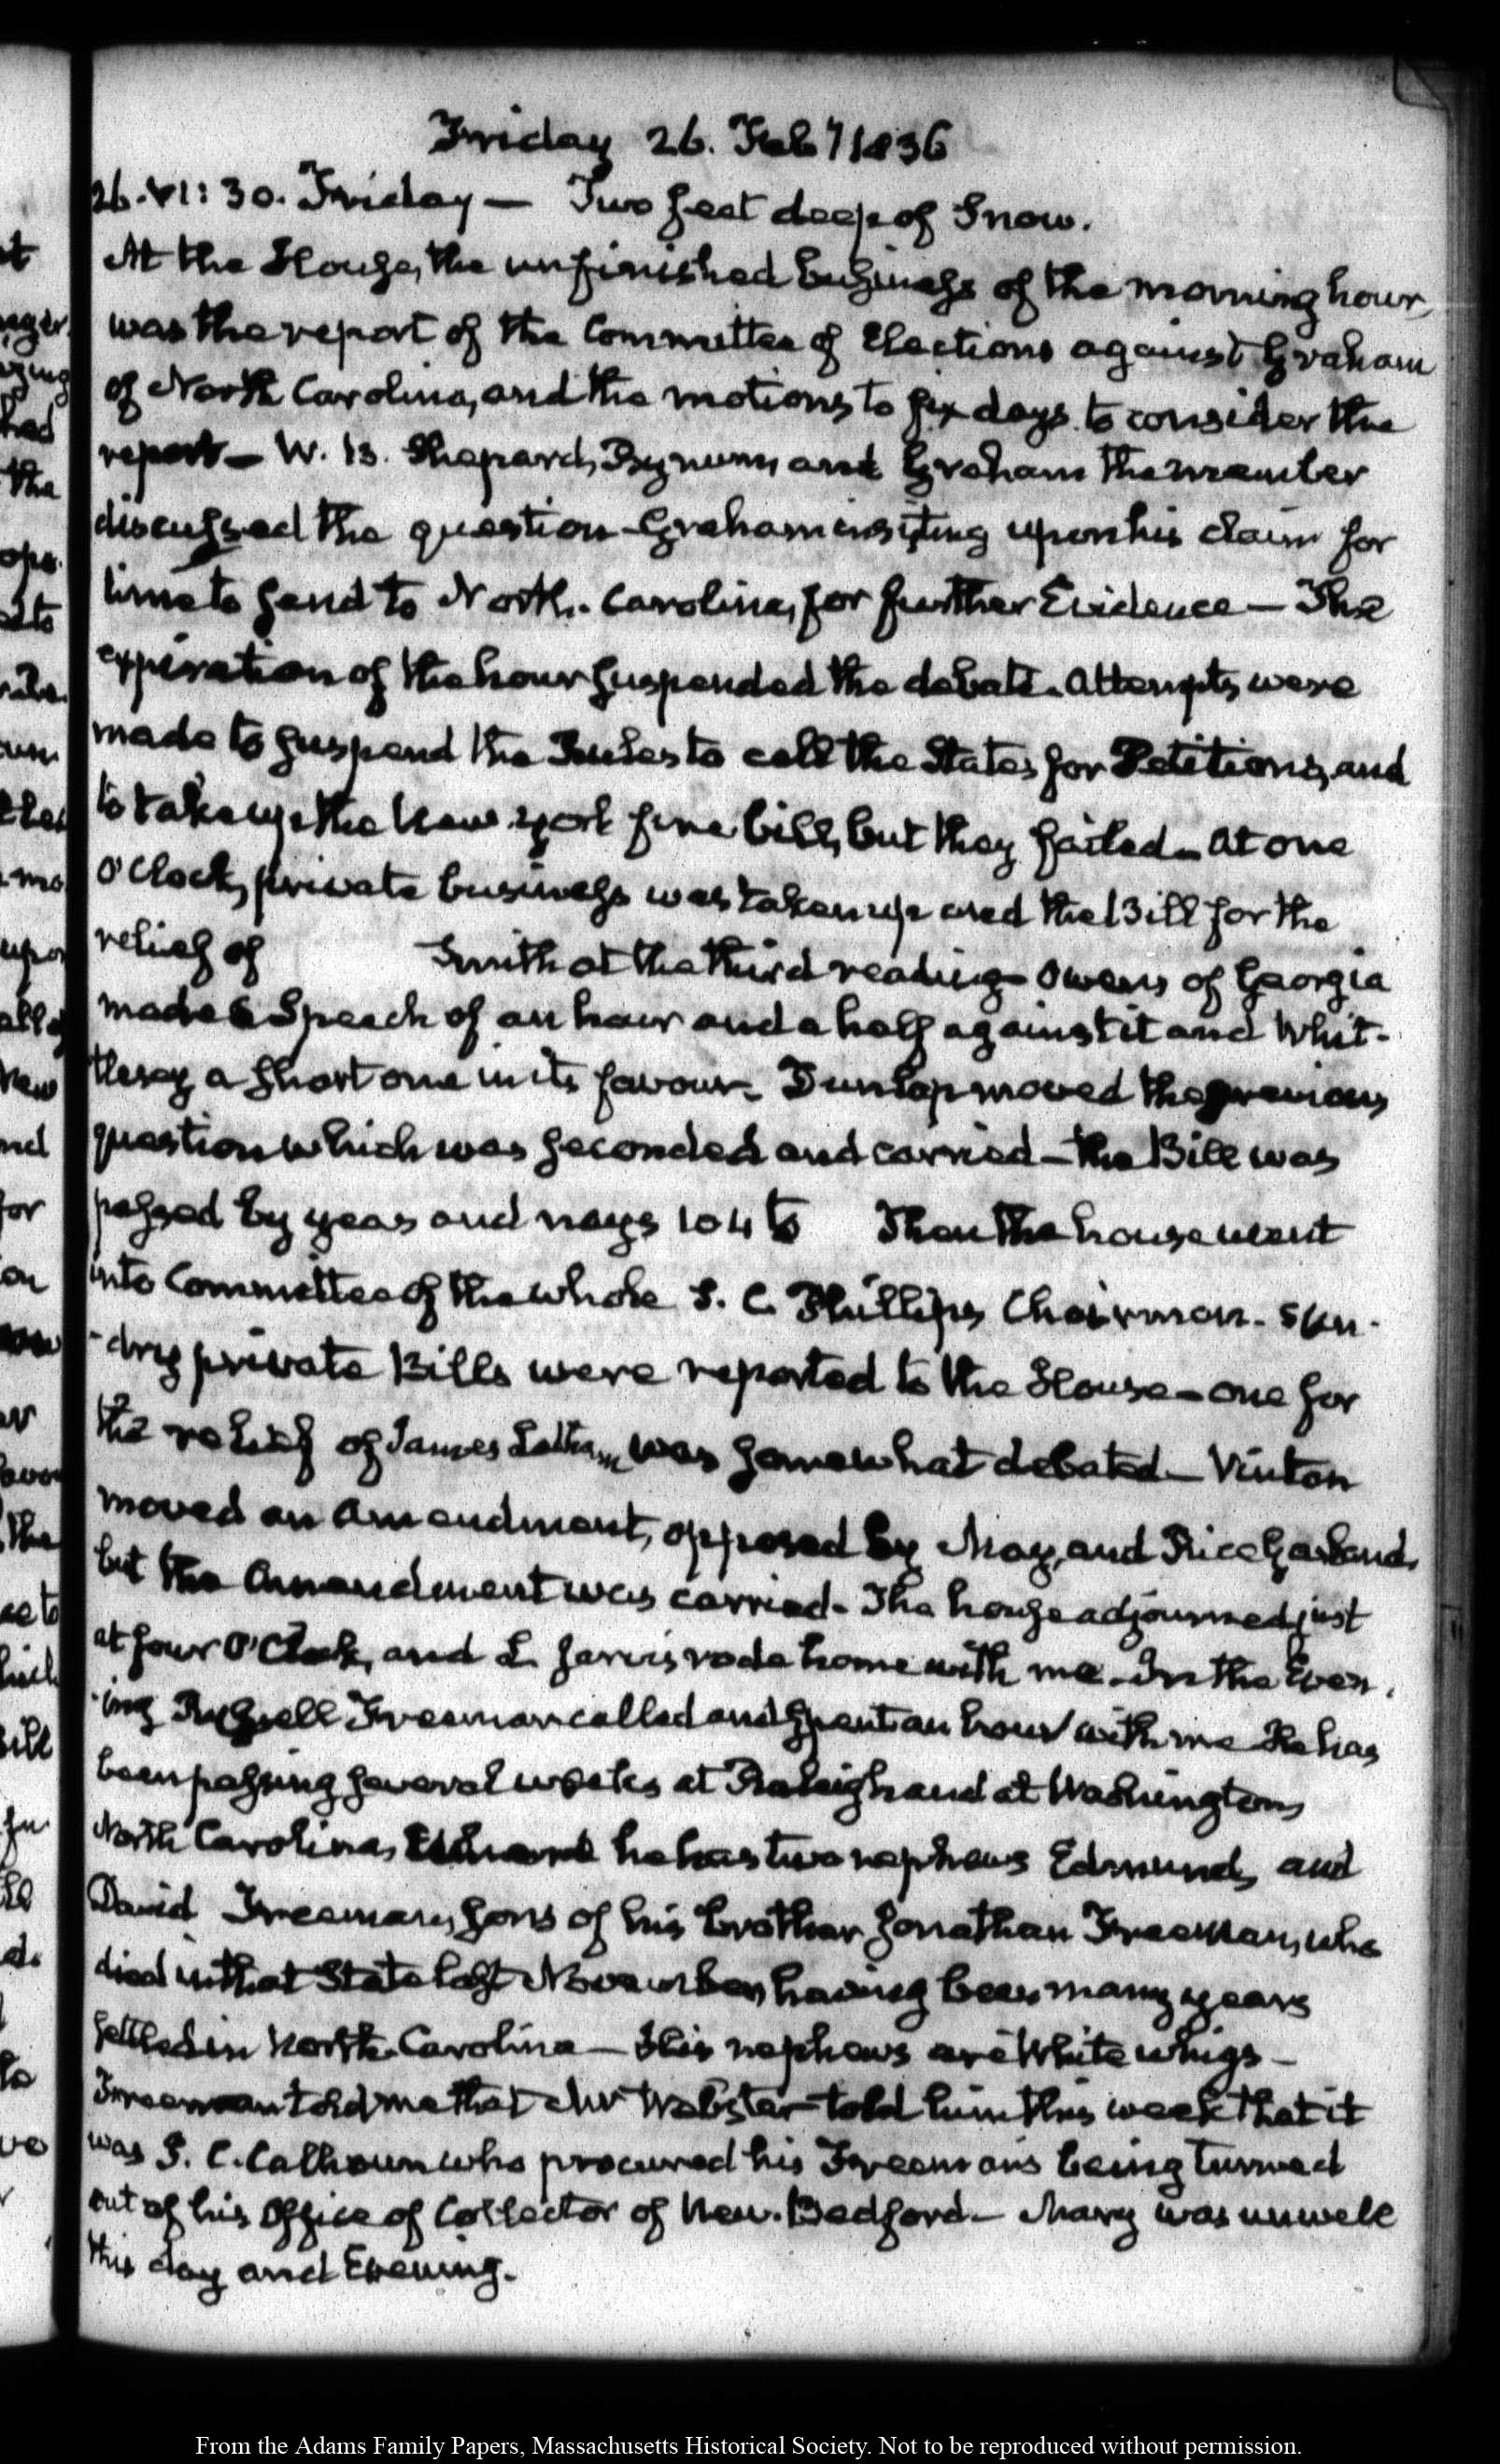 Friday 26. Feb'y 1836
26. VI: 30. Friday — Two feet deep of Snow.
At the House, the unfinished business of the morning hour,
was the report of the Committee of Elections against Graham
of North Carolina, and the motions to fix days to consider the
report — W. B. Shepard, Bynum, and Graham the member
discussed the question — Graham insisting upon his claim for
time to send to North-Carolina, for further Evidence — The
expiration of the hour suspended the debate. Attempts were
made to suspend the Rules to call the States for Petitions, and
to take up the New-York fire bill, but they failed — At one
O'Clock, private business was taken up and the Bill for the
relief of Smith at the third reading — Owens of Georgia
made a Speech of an hour and a half against it and Whit-
tlesey a short one in its favour. Dunlap moved the previous
question which was seconded and carried — the Bill was
passed by yeas and nays 104 to Then the house went
into Committee of the whole S. C. Phillips Chairman. Sun-
-dry private Bills were reported to the House — one for
the relief of James Latham was somewhat debated — Vinton
moved an Amendment, opposed by May, and Rice Garland,
but the Amendment was carried. The house adjourned just
at four O'Clock, and L. Jarvis rode home with me. In the Even-
-ing Russell Freeman called and spent an hour with me He has
been passing several weeks at Raleigh and at Washington,
North Carolina, where he has two nephews Edmund, and
David Freeman, sons of his brother Jonathan Freeman, who
died in that State last November, having been many years
settled in North-Carolina — His nephews are White whigs —
Freeman told me that Mr Webster told him this week that it
was J. C. Calhoun who procured his Freeman's being turned
out of his Office of Collector of New-Bedford — Mary was unwell
this day and Evening.
From the Adams Family Papers, Massachusetts Historical Society. Not to be reproduced without permission.